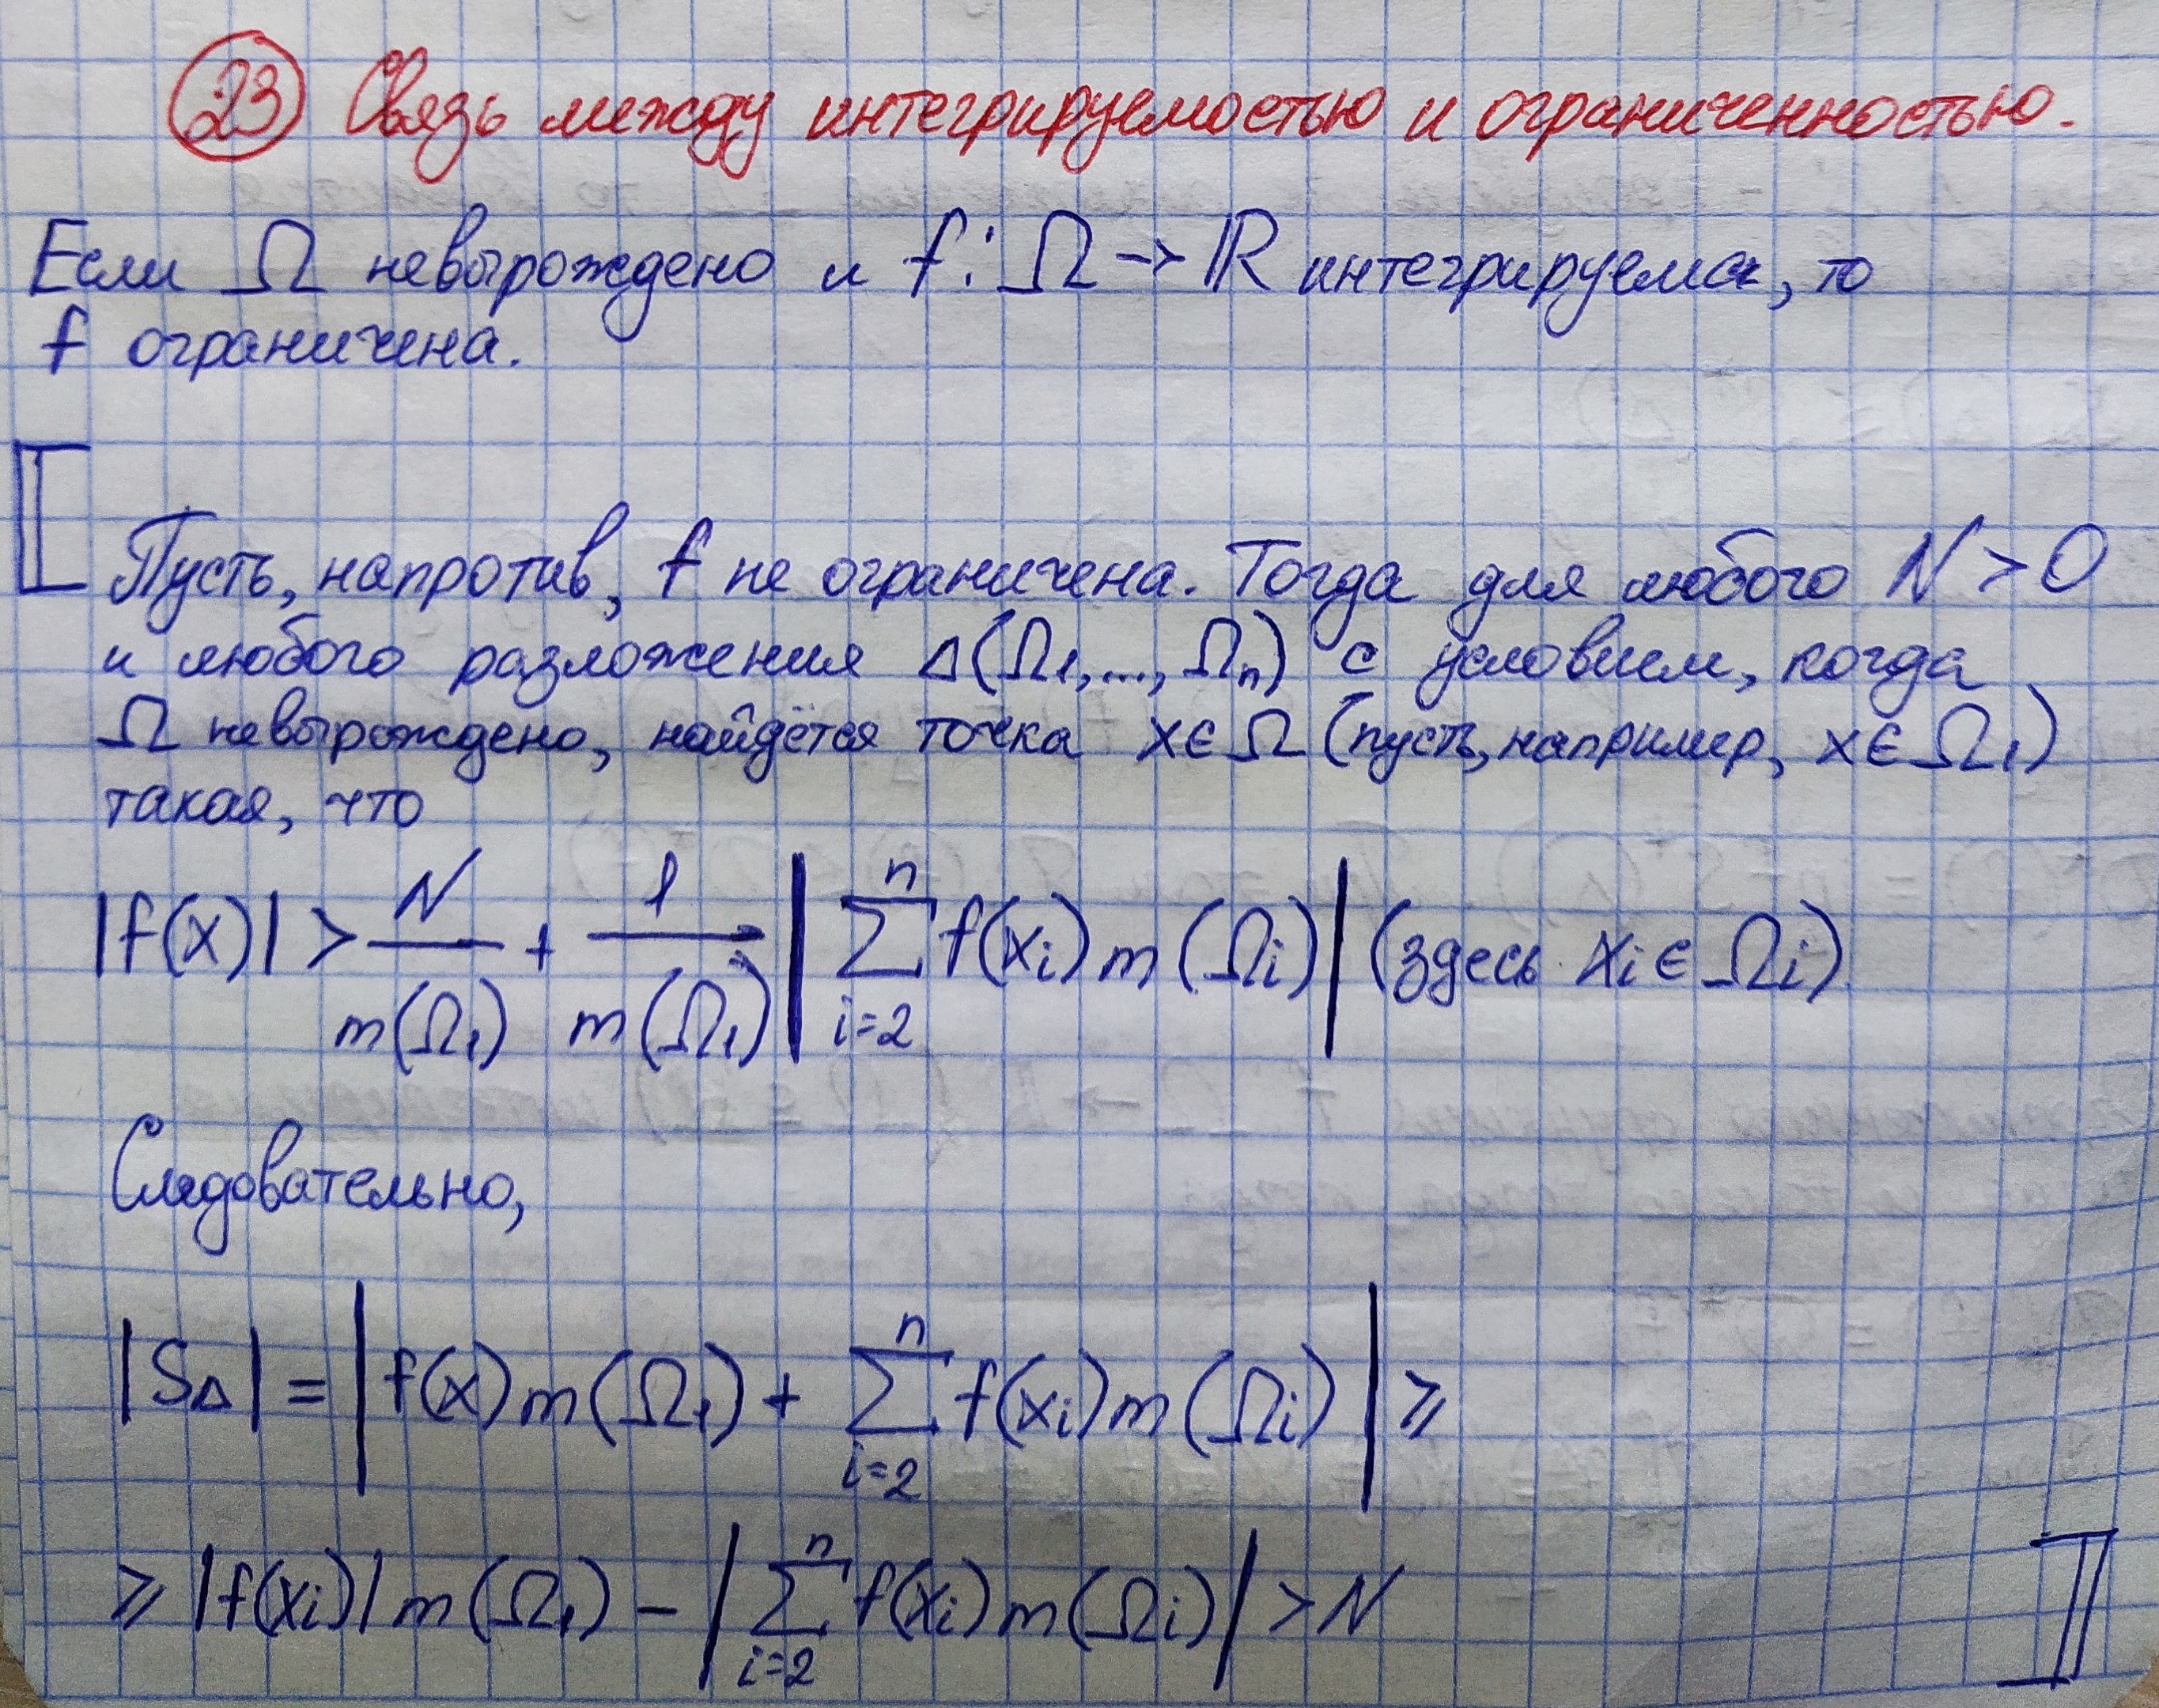 23 Связь между интегрируемостью и ограниченностью.
Если Ω невырождено и f: Ω → ℝ интегрируема, то
f ограничена.
Пусть, напротив, f не ограничена. Тогда для любого N > 0
и любого разложения Δ(Ω₁, ..., Ωₙ) с условием, когда
Ω невырождено, найдётся точка x ∈ Ω (пусть, например, x ∈ Ω₁)
такая, что
|f(x)| > N/m(Ω₁) + 1/m(Ω₁) |∑ᵢ₌₂ⁿ f(xᵢ) m(Ωᵢ)| (здесь xᵢ ∈ Ωᵢ)
Следовательно,
|S_Δ| = |f(x) m(Ω₁) + ∑ᵢ₌₂ⁿ f(xᵢ) m(Ωᵢ)| ⩾
⩾ |f(xᵢ)| m(Ω₁) − |∑ᵢ₌₂ⁿ f(xᵢ) m(Ωᵢ)| > N